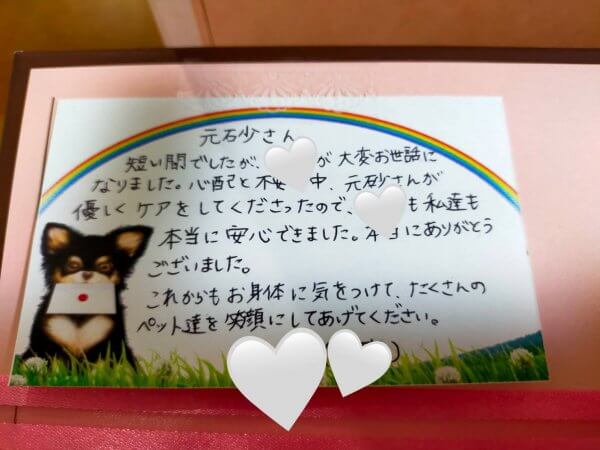 元砂さん
短い間でしたが、が 大変お世話に
なりました。心配と不安中、元砂さんが
優しくケアをしてくださったので、も私達も
本当に安心できました。本当にありがとう
ございました。
これからもお身体に気をつけて、たくさんの
ペット達を笑顔にしてあげてください。